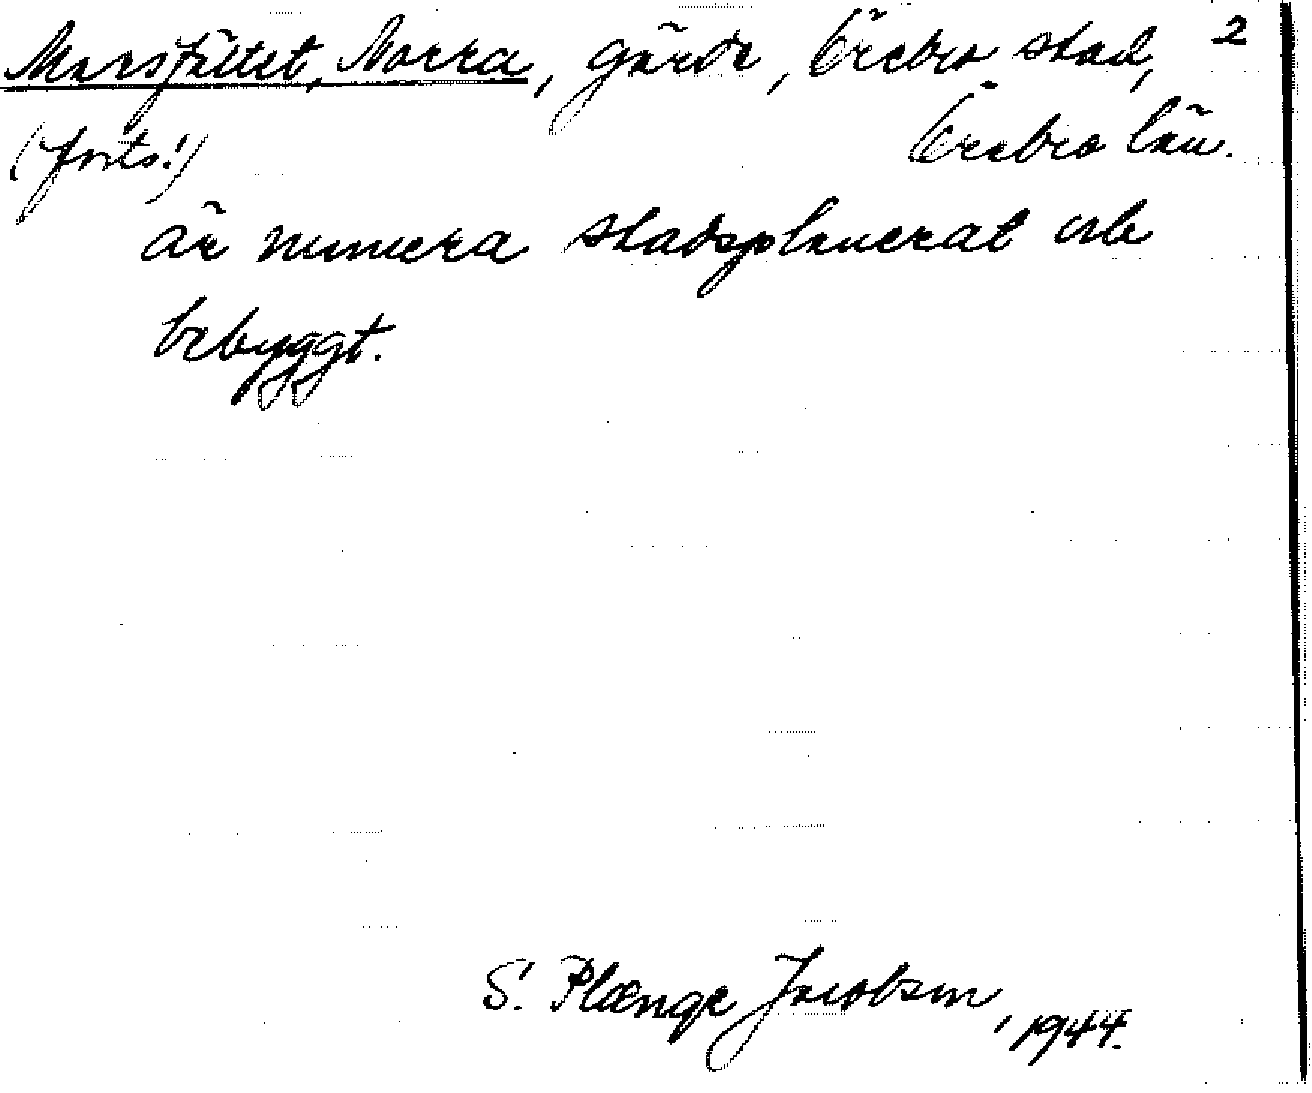 Marsfältet, Norra, gärde, Örebro stad, 2
(forts!) Örebro län.
är numera stadsplanerat och
bebyggt.
S. Plænge Jacobson, 1944.